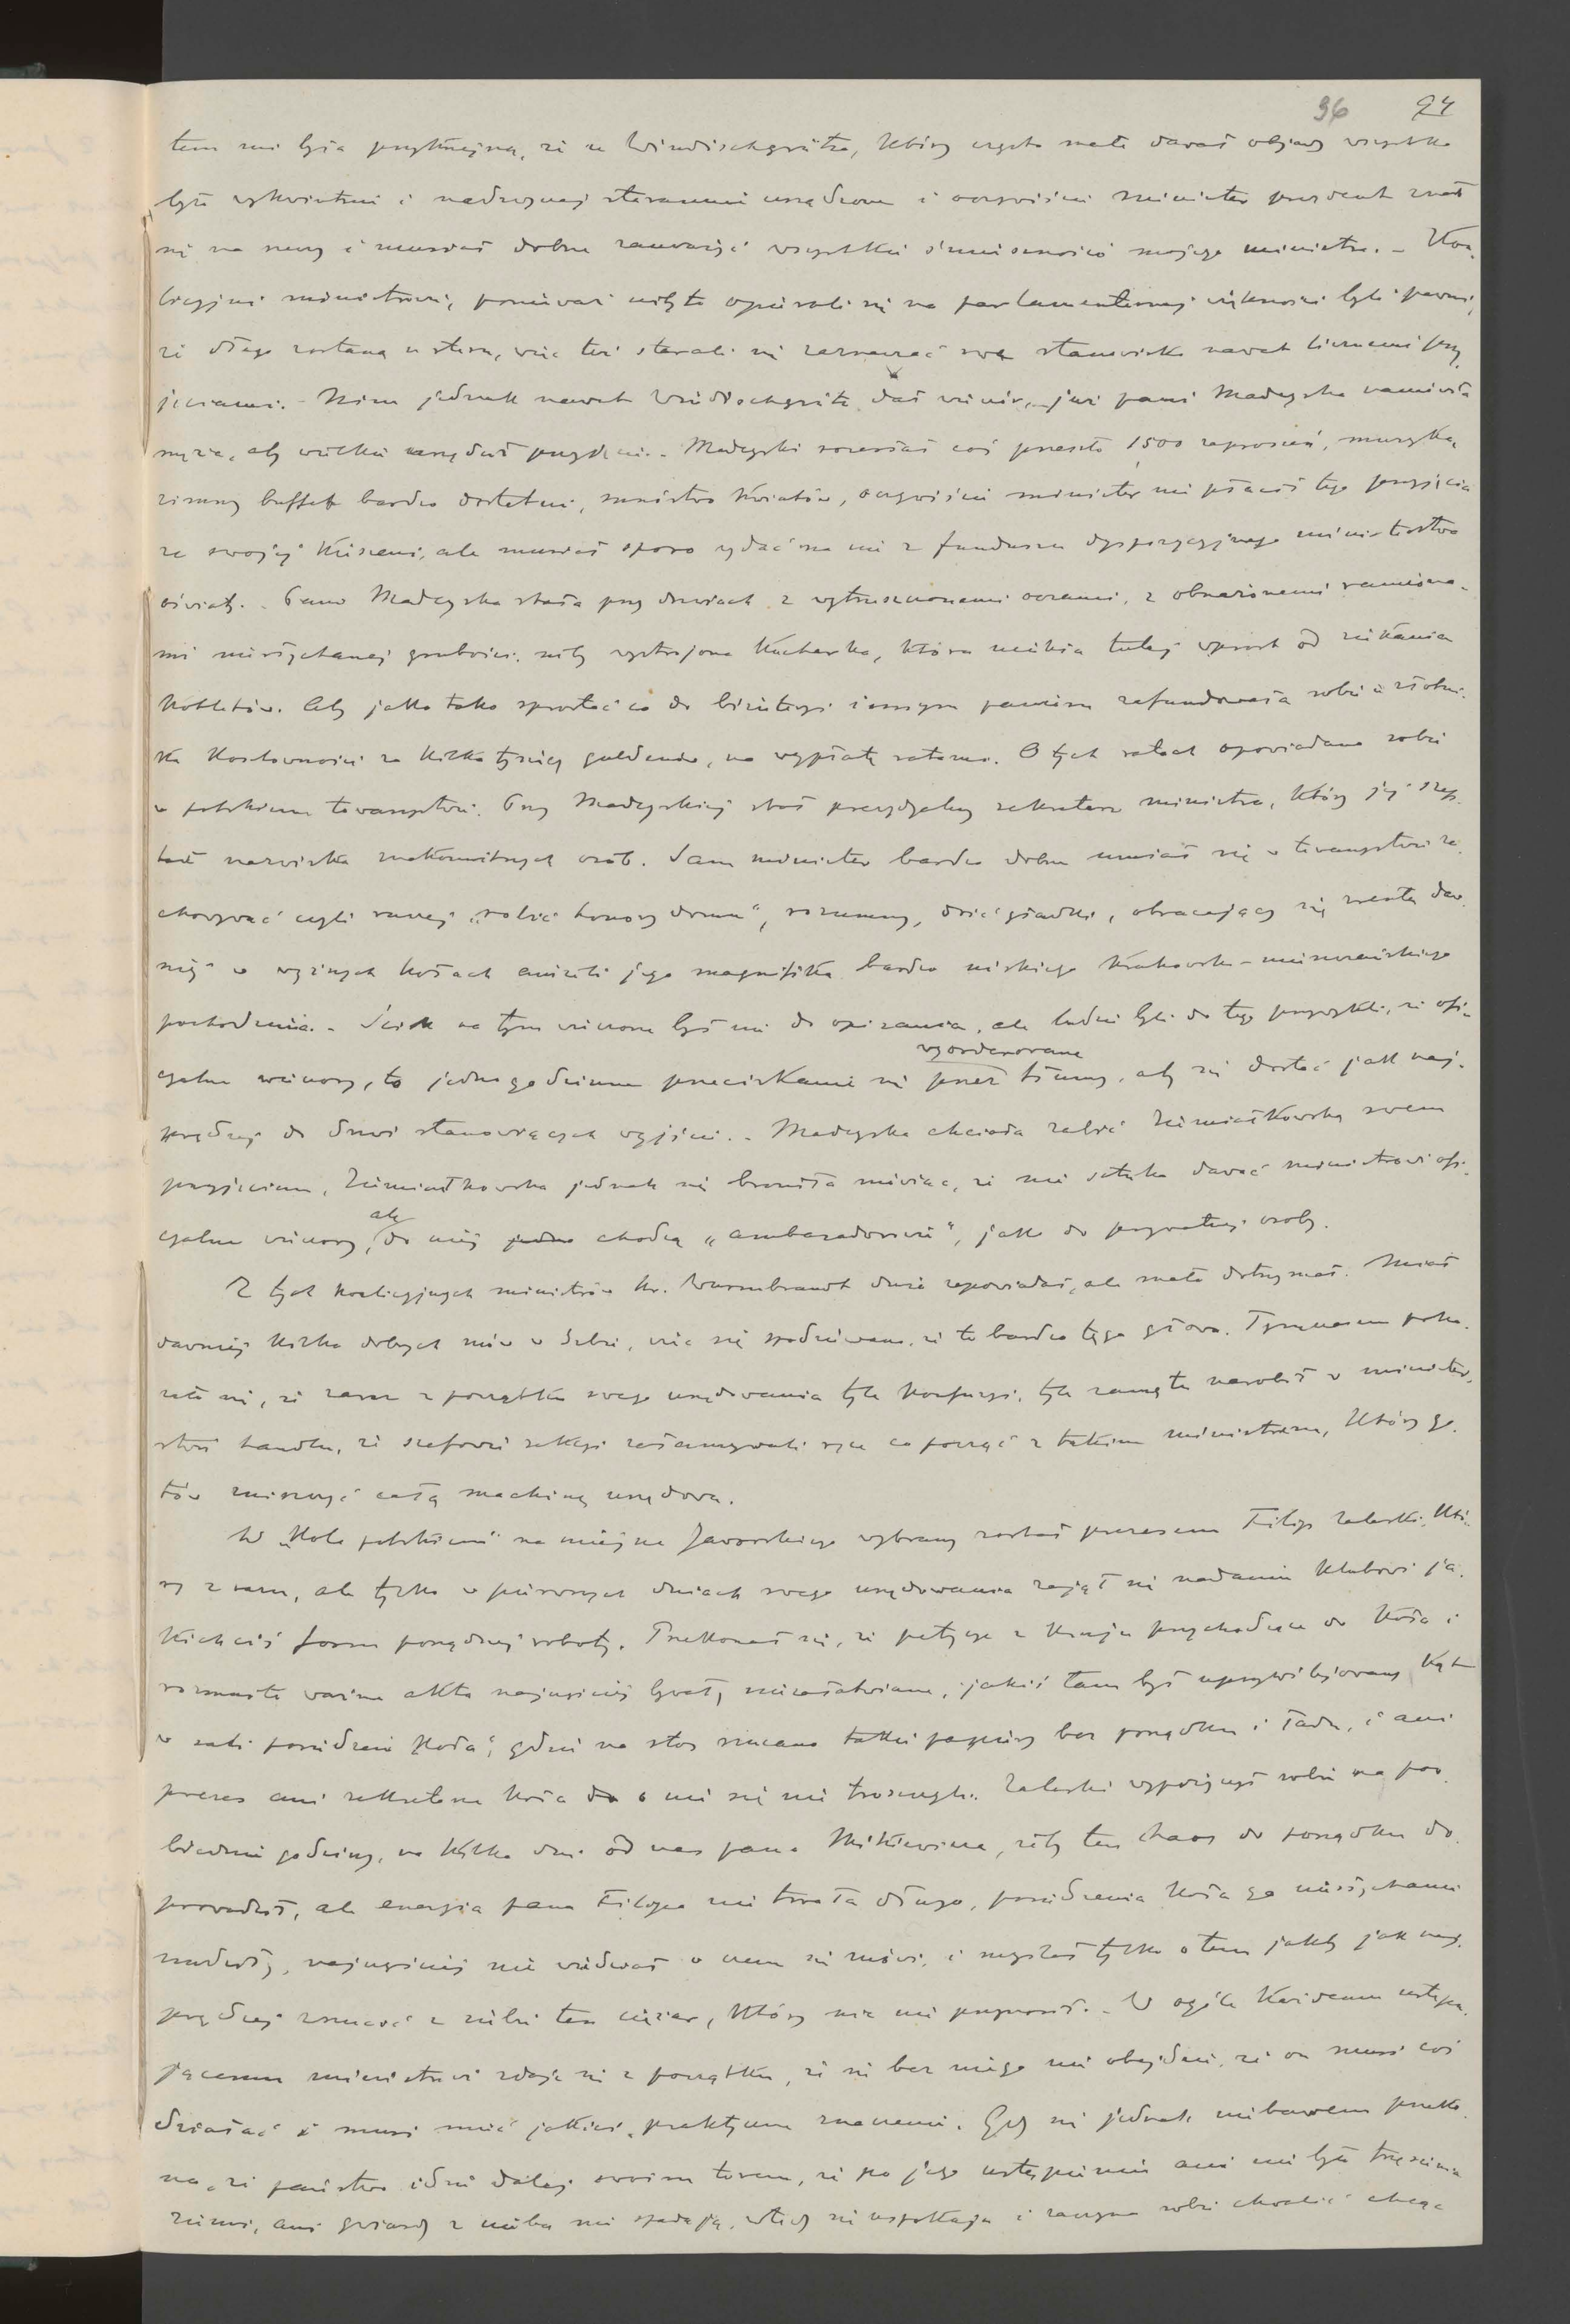 96 94
tem mi była przykrzejszą, że u Windischgrätza, który często małe dawał objady wszystko
było wykwintnie i nadzwyczaj starannie urządzone i oczywiście minister prezydent znał
się na rzeczy i musiał dobrze zauważyć wszystkie śmieszności mojego ministra. – Koa-
licyjni ministrowie, ponieważ niby to opierali się na parlamentarnej większości byli pewni,
że długo zostaną u steru, więc też starali się zaznaczać swe stanowisko nawet licznemi przy-
jęciami. – Nim jednak nawet Windischgrätz dał wieczór, już pani Madeyska namówiła
męża, aby wielkie urządził przyjęcie. – Madeyski rozesłał coś przeszło 1500 zaproszeń, muzyka,
zimny buffet bardzo dostatni, mnóstwo kwiatów, oczywiście minister nie płacił tego przyjęcia
ze swojej kieszeni, ale musiał sporo wydać na nie z funduszu dyspozycyjnego ministerstwa
oświaty. – Pani Madeyska stała przy drzwiach z wytrzeszczonemi oczami, z obnażonemi ramiona-
mi niesłychanej grubości, niby wystrojona kucharka, która uciekła tutaj wprost od
kotletów. Aby jako tako sprostać co do biżuteryi innym paniom zafundowała sobie u złotni-
ka kosztowności za kilka tysięcy guldenów, na wypłatę ratami. O tych ratach opowiadano sobie
w polskiem towarzystwie. Przy Madeyskiej stał prezydyalny sekretarz ministra, który jej szep-
tał nazwiska znakomitszych osób. Sam minister bardzo dobrze umiał się w towarzystwie za-
chowywać czyli raczej „robić honory domu", rozumny, dość gładki, obracający się zresztą daw-
niej w wyższych kołach aniżeli jego magnifika bardzo niskiego krakowsko-mieszczańskiego
pochodzenia. – Ścisk na tym wieczorze był nie do opisania, ale ludzie byli do tego przywykli, że ofi-
cyalne wieczory, to jednogodzinne przeciskanie się przez wyorderowane tłumy, aby się dostać jak naj-
prędzej do drzwi stanowiących wyjście. – Madeyska chciała zabić Ziemiałkowską swem
przyjęciem, Ziemiałkowska jednak się broniła mówiąc, że nie sztuka dawać ministrowi ofi-
cyalne wieczory, ale do niej chodzą „ambasadorowie", jak do prywatnej osoby.
Z tych koalicyjnych ministrów hr. Wurmbrandt dużo zapowiadał, ale mało dotrzymał. Miał
dawniej kilka dobrych mów w Izbie, więc się spodziewano, że to bardzo tęga głowa. Tymczasem poka-
zało się, że zaraz z początku swego urzędowania tyle konfuzyi, tyle zamętu narobił w minister-
stwie handlu, że szefowie sekcyi załamywali ręce co począć z takim ministrem, który go-
tów zniszczyć całą machinę urzędową.
W „Kole polskiem" na miejsce Jaworskiego wybrany został prezesem Filip Zaleski, któ-
ry zaraz, ale tylko w pierwszych dniach swego urzędowania zajął się nadaniem klubowi ja-
kichciś form porządnej roboty. Przekonał się, że petycye z kraju przychodzące do Koła i
rozmaite ważne akta najczęściej bywały niezałatwiane, jakiś tam był uprzywilejowany kąt
w sali posiedzeń Koła, gdzie na stos rzucano takie papiery bez porządku i ładu, i ani
prezes ani sekretarze Koła o nie się nie troszczyli. Zaleski wypożyczył sobie na poo-
biednie godziny, na kilka dni od nas pana Mitkiewicza, żeby ten chaos do porządku do-
prowadził, ale energia pana Filipa nie trwała długo, posiedzenia Koła go niesłychanie
nudziły, najczęściej nie wiedział o czem się mówi, i myślał tylko o tem jakby jak naj-
prędzej zrzucić z siebie ten ciężar, który nic nie przynosił. – W ogóle każdemu ustępu-
jącemu ministrowi zdaje się z początku, że się bez niego nie obejdzie, że on musi coś
działać i musi mieć jakieś praktyczne znaczenie. Gdy się jednak niebawem przeko-
na, że państwo idzie dalej swoim torem, że po jego ustąpieniu ani nie było trzęsienia
ziemi, ani gwiazdy z nieba nie spadają, wtedy się uspokaja i zaczyna sobie chwalić